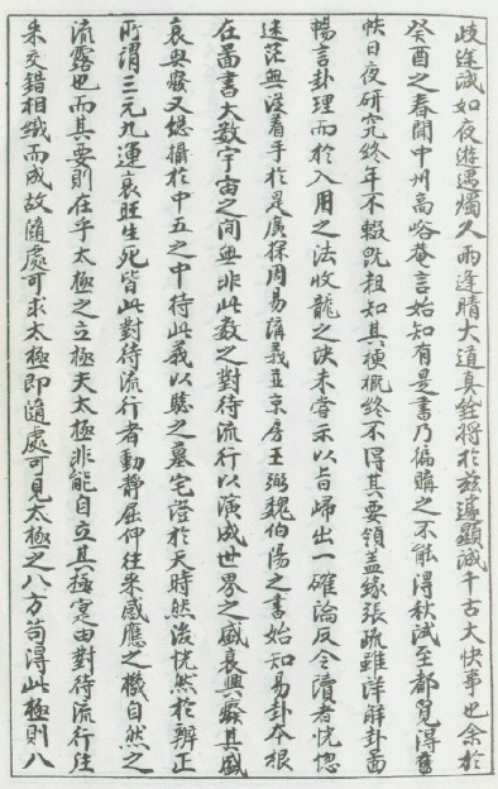 歧途誠如夜遊遇燭久雨逢晴大道真銓將於茲遽顯誠千古大快事也余於
癸酉之春聞中州高峪菴言始知有是書乃徧購之不能得秋試至都覓得舊
帙日夜研究終年不輟旣粗知其梗概終不得其要領盖緣張疏雖詳解卦畫
暢言卦理而於入用之法收龍之訣未嘗示以旨歸出一確論反令讀者恍惚
迷茫無從着手於是廣探周易講義並京房王弼魏伯陽之書始知易卦本根
在啚書大數宇宙之間無非此数之對待流行以演成世界之盛衰興癈其盛
衰興癈又総攝於中五之中待此義以驗之墓宅證於天時然後恍然於辨正
所謂三元九運衰旺生死皆此對待流行者動靜屈伸往来感應之機自然之
流露也而其要則在乎太極之立極夫太極非能自立其極寔由對待流行往
来交錯相織而成故隨處可求太極即隨處可見太極之八方苟得此極則八